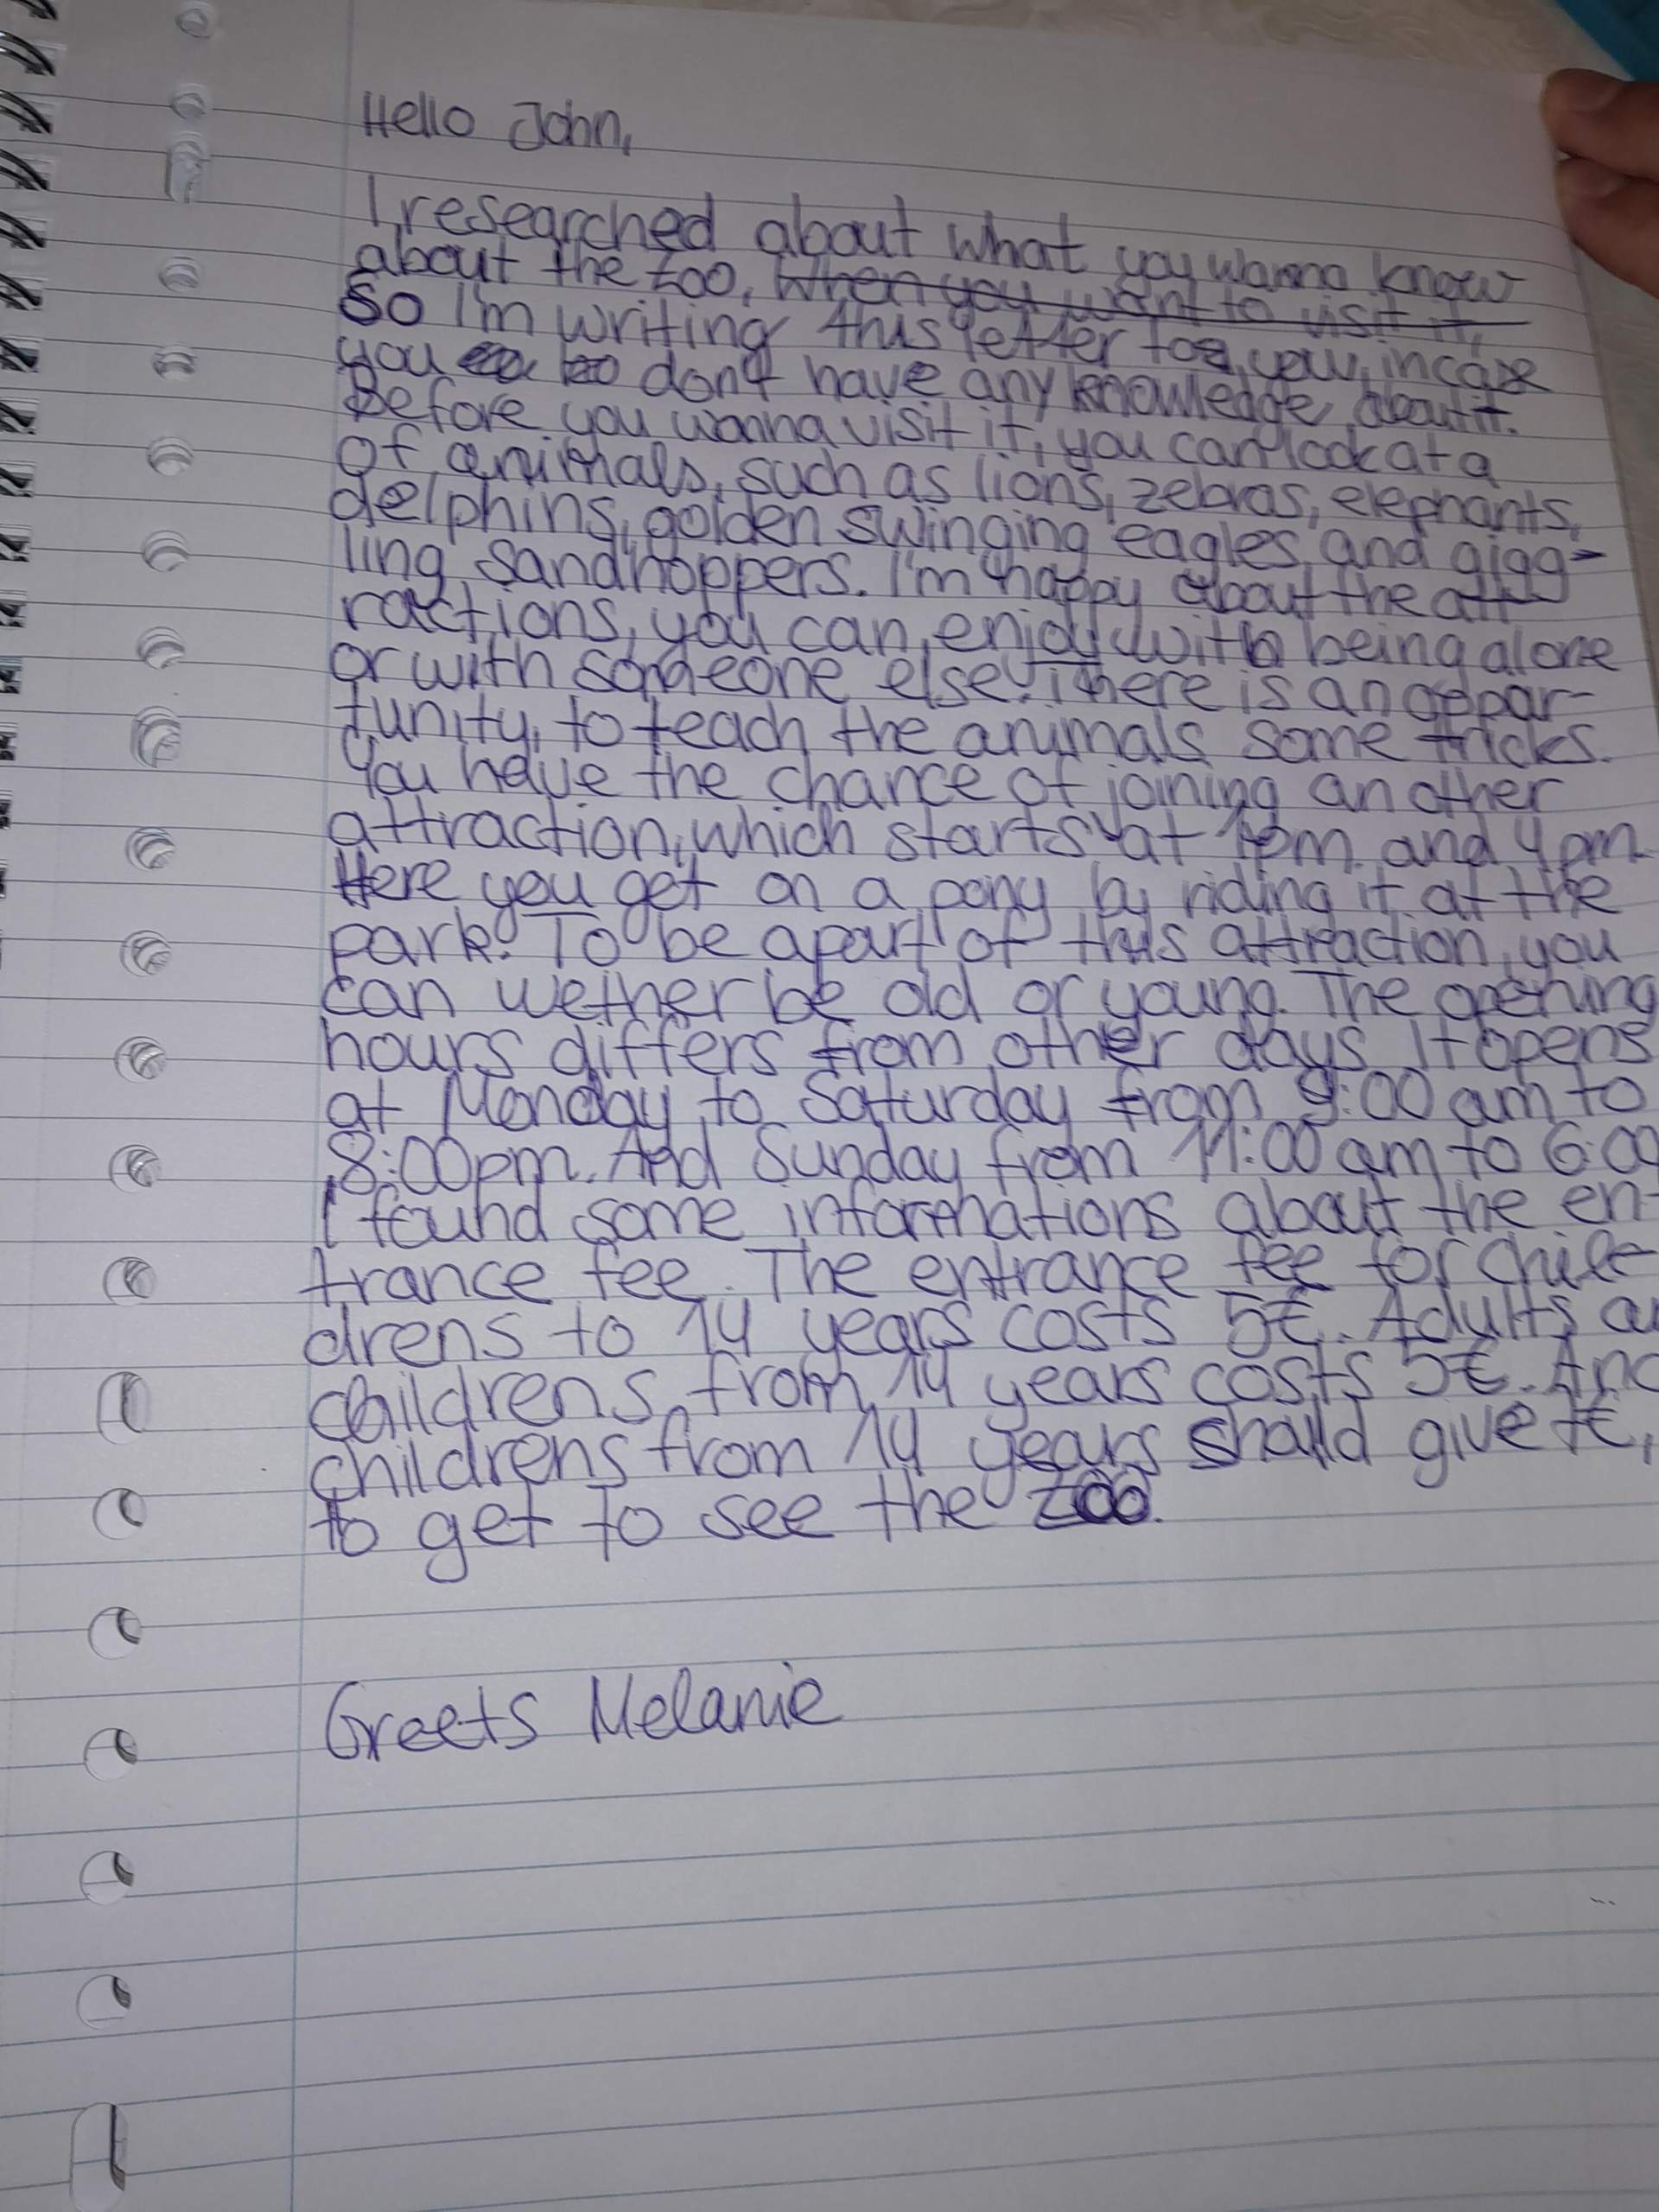 Hello John,
I researched about what you wanna know
about the zoo, when you want to visit it,
So I'm writing this letter to you, incase
you don't have any knowledge about it.
Before you wanna visit it, you can look at a
of animals, such as lions, zebras, elephants,
delphins, golden swinging eagles, and gigg-
ling sandhoppers. I'm happy about the att-
ractions, you can enjoy with being alone
or with someone else. There is an oppar-
tunity, to teach the animals some tricks.
You have the chance of joining an other
attraction, which starts at 1pm. and 4 pm.
Here you get on a pony by riding it at the
park. To be apart of this attraction, you
can wether be old or young. The opening
hours differs from other days. It opens
at Monday to Saturday from 9:00 am to
8:00pm. And Sunday from 11:00 am to 6:00
I found some informations about the en-
trance fee. The entrance fee for chil-
drens to 14 years costs 5€. Adults
childrens from 14 years costs 5€. And
childrens from 14 years should give €,
to get to see the zoo.
Greets Melanie